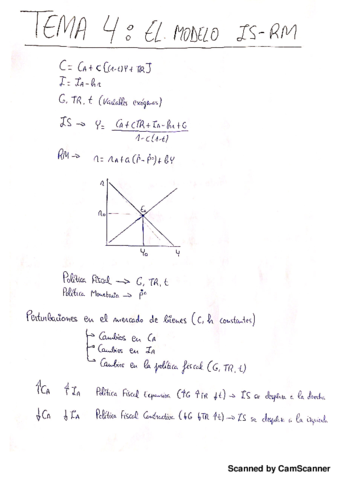 TEMA 4: EL MODELO IS-RM
C = CA + c[(1-t)Y + TR]
I = IA - hr
G, TR, t (Variables exógenas)
IS → Y = CA + cTR + IA - hr + G
1 - c(1-t)
RM → r = rA + a(Ṗ - Ṗº) + bY
r
r0
E0
Y0
Y
Política Fiscal → G, TR, t
Política Monetaria → Ṗº
Perturbaciones en el mercado de bienes (C, h constantes)
→ Cambios en CA
→ Cambios en IA
→ Cambios en la política fiscal (G, TR, t)
↑CA ↑IA Política Fiscal Expansiva (↑G ↑TR ↓t) → IS se desplaza a la derecha
↓CA ↓IA Política Fiscal Contractiva (↓G ↓TR ↑t) → IS se desplaza a la izquierda
Scanned by CamScanner